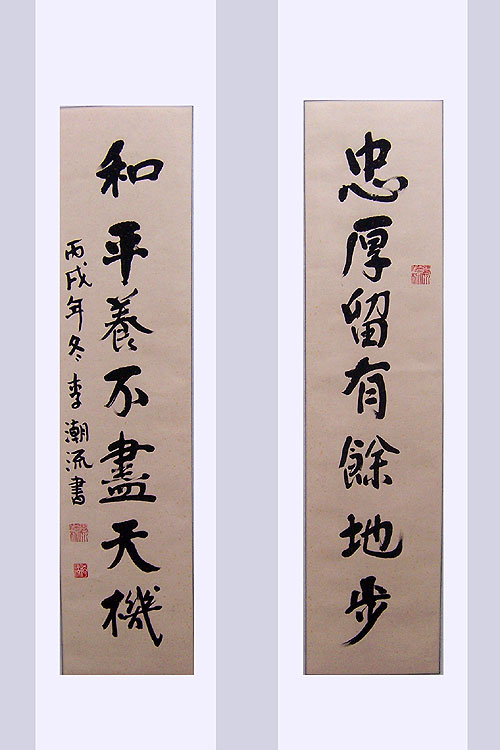 忠厚留有餘地步
和平養不盡天機
丙戌年冬李潮流書